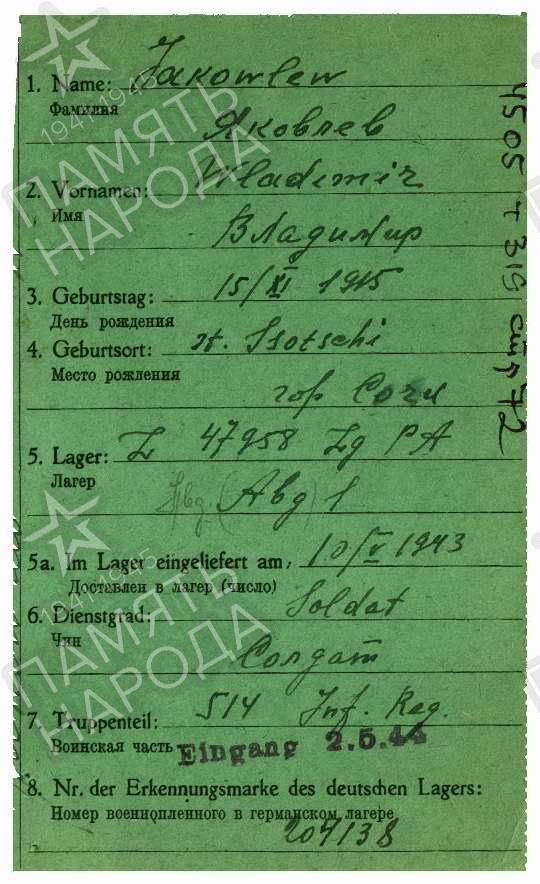 1. Name: Jakowlew
Фамилия
Яковлев
2. Vornamen: Wladimir
Имя
Владимир
3. Geburtstag: 15/XI 1915
День рождения
4. Geburtsort: st. Ssotschi
Место рождения
гор Сочи
5. Lager: Z 47958 Zg PA
Лагер
(Abg) 1
5a. Im Lager eingeliefert am: 10/V 1943
Доставлен в лагер (число)
6. Dienstgrad: Soldat
Чин
Солдат
7. Truppenteil: 514 Inf. Reg.
Воинская часть Eingang 2.5.44
8. Nr. der Erkennungsmarke des deutschen Lagers:
Номер военнопленного в германском лагере
204138
4505 т 319 стр 72
ПАМЯТЬ
НАРОДА
1941-1945
ПАМЯТЬ
НАРОДА
1941-1945